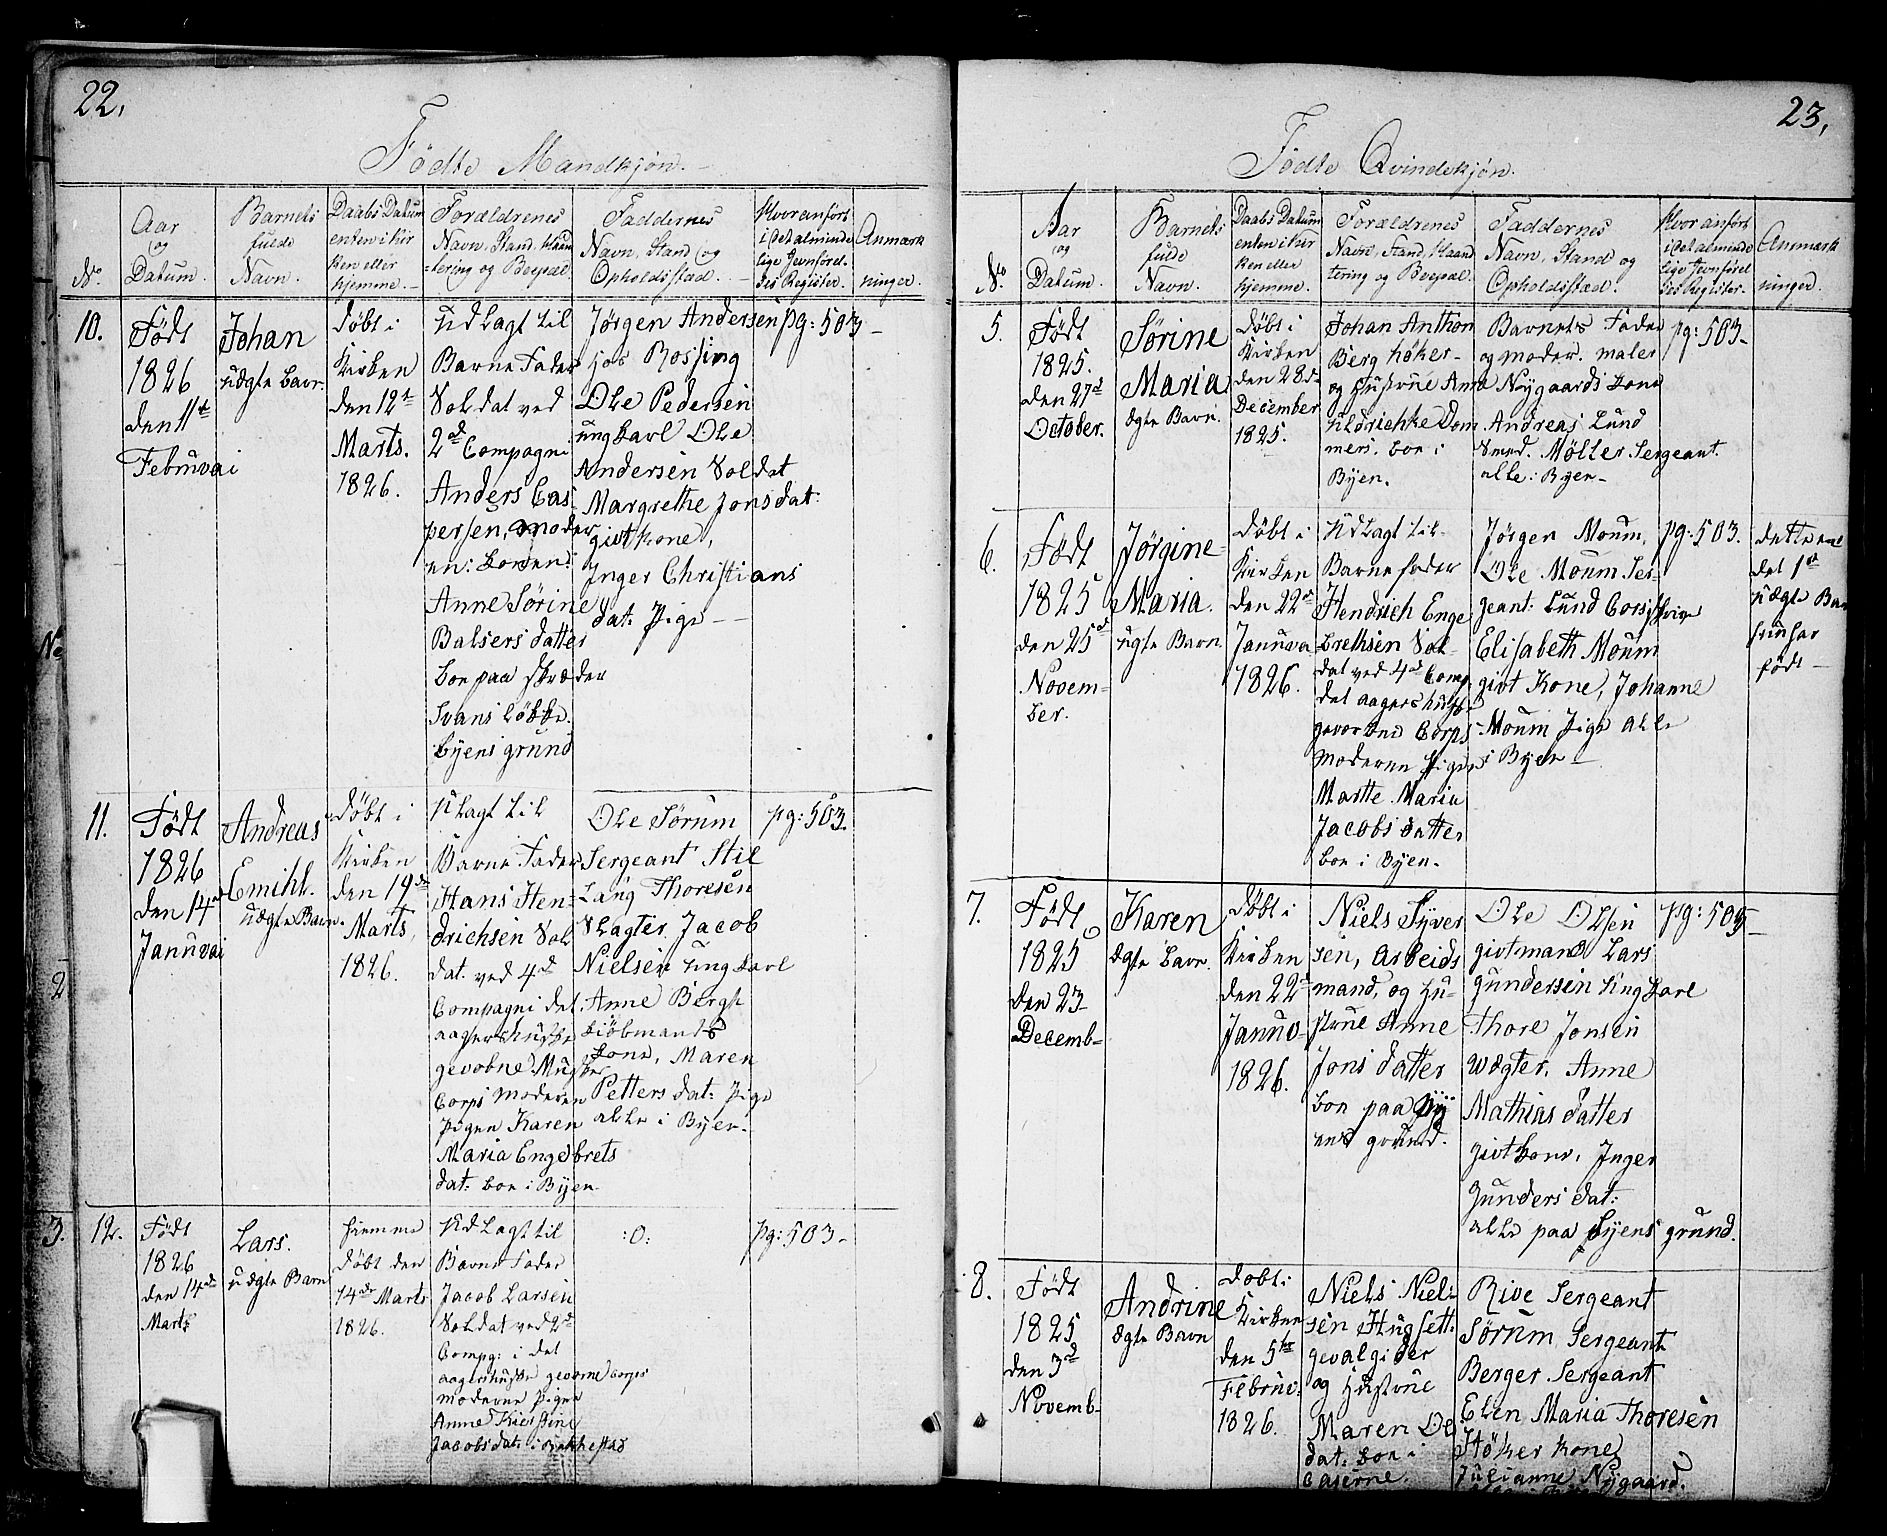 22.
Födte Mandkjön.
No.
Aar
og
Datum.
Barnets
fulde
Navn.
Daabs Datum
enten i Kir
ken eller
hjemme.
Forældrenes
Navn, Stand, Haand
tering og Bopæl
Faddernes
Navn, Stand og
Opholdsstæd.
Hvor anfört
i det alminde
lige Jevnförel
ses Register.
Anmærk
ninger.
10.
Födt
1826
den 11te
Februvai
Johan
uægte barn.
döbt i
Kirken
den 12te
Marts.
1826.
Udlagt til
Barne Fader
Soldat ved
2d Compagni
Anders Cas
persen, moder
en:
Anne Sörine
Balsers datter
boe paa
byens grund
Jörgen Andersen
hos Rossing
Ole Pedersen
ungkarl Ole
Andersen Soldat
Margrethe Jonsdat:
givt kone,
Inger Christians
dat: Pige
pg: 503
11.
Födt
1826
den 14d
Januvai
Andreas
Emihl.
uægte Barn.
döbt i
Kirken
den 19de
Marts,
1826.
Ulagt til
Barne Fader
Hans Hen
drichsen Sol
dat. ved 4d
Compagni det
aagershuske
gevobne
Corps moderen
Pigen Karen
Maria Engebrets
dat: boe i Byen
Ole Sörum
Sergeant Stil
Laug Thoresen
Slagter, Jacob
Nielsen ungkarl
Anne Bergh
kiöbmands
kone, Maren
Petters dat: Pige
alle i Byen
pg: 503.
12.
Födt
1826
den 14de
Marts
Lars.
uægte Barn
hiemme
döbt den
14de Marts
1826.
Udlagt til
Barne Fader
Jacob Larsen
Soldat ved 2d
Compg: i det
aagershuske gevorne Corps
moderne Pigen
Anne Kierstine
Jacobsdat: i Bakkestad
:0:
pg: 503
23.
Födte Qvindekjön.
No.
Aar
og
Datum.
Barnets
fulde
Navn.
Daabs Datum
enten i Kir
ken eller
hjemme.
Forældrenes
Navn, Stand, Haand
tering og Bopæl
Faddernes
Navn, Stand og
Opholdsstæd.
Hvor anfört
i det alminde
lige Jevnförel
ses Register.
Anmærk
ninger.
5.
Födt
1825.
den 27d
October.
Sörine
Maria
ægte Barn.
döbt i
Kirken
den 28de
December
1825.
Johan Anthon
Berg höker
og Hustrue Anna
Uldrichke Dom
mers. boe i
Byen.
Barnets Fader
og moder. maler
Nygaards kone
Andreas Lund
Smed. Möller Sergeant.
alle i Byen
pg: 503
6.
Födt
1825
den 25d
Novem
ber.
Jörgine
Maria.
ugte Barn
döbt i
Kirken
den 22de
Januva
1826.
Udlagt til
Barnefader
Hendrich Enge
brethsen Sol
dat ved 4d Comp
det aagershuske
gevorbne Corps
moderen Pigen
Martte Maria
Jacobs datter
boe i Byen.
Jörgen Moum,
Ole Moum Ser
geant: Lund Corpskriver
Elisabeth Moum
givt Kone, Johanne
Moum Pige alle
i Byen
pg: 503.
dette er
det 1ste
uægte Barn
hun har
födt
7.
Födt
1825
den 23
Decemb
Karen
ægte barn.
döbt i
Kirken
den 22
Januv
1826.
Niels Syver
sen, Arbeids
mand, og Hu
strue Anne
Jons datter
boe paa By
ens grund.
Ole Olsen
givtmand Lars
Gundersen Ungkarl
Thore Jonsen
Vægter, Anne
Mathias datter
givt kone, Inger
Gunders dat:
alle paa Byens grund.
pg: 503
8.
Födt
1825
den 3d
Novemb
Andrine
ægte Barn
döbt i
Kirken
den 5te
Februv:
1826.
Niels Niel
sen Hugsett:
gevalgider
og Hustrue
Maren Ols
dat: boe i
Caserne.
Rive Sergeant
Sörum, Sergeant
Berger Sergeant
Elen Maria Thoresen
Höker kone
Julianne Nygaard.